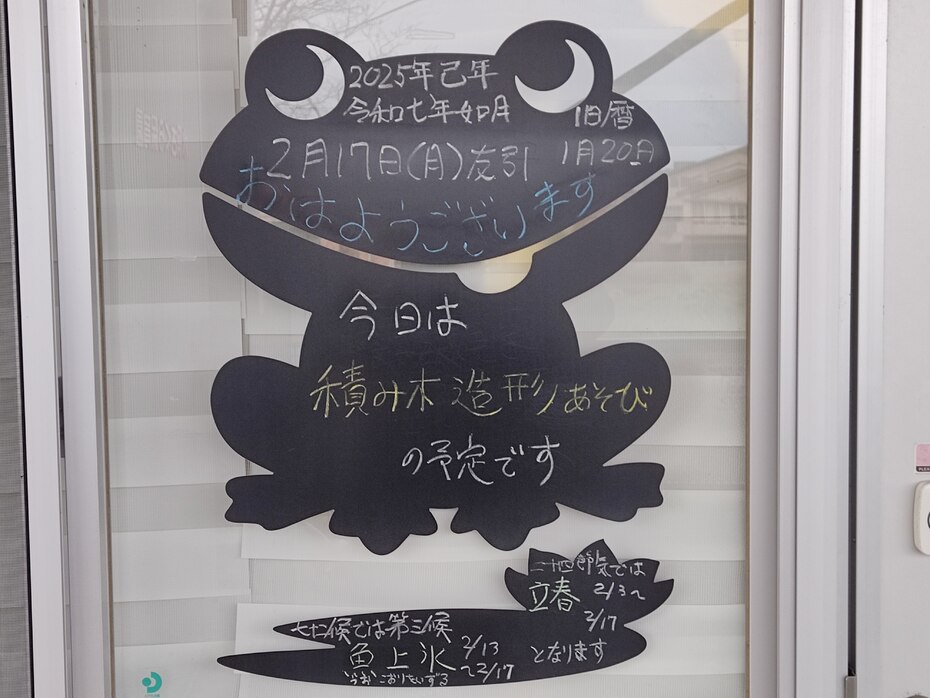 2025年己年
令和七年如月
旧暦
2月17日(月)友引
1月20日
おはようございます
今日は
積み木造形あそび
の予定です
二十四節気では
立春 2/3〜
2/17
七十二候では第三候
魚上氷 2/13
〜2/17
うお こおりをいずる
となります